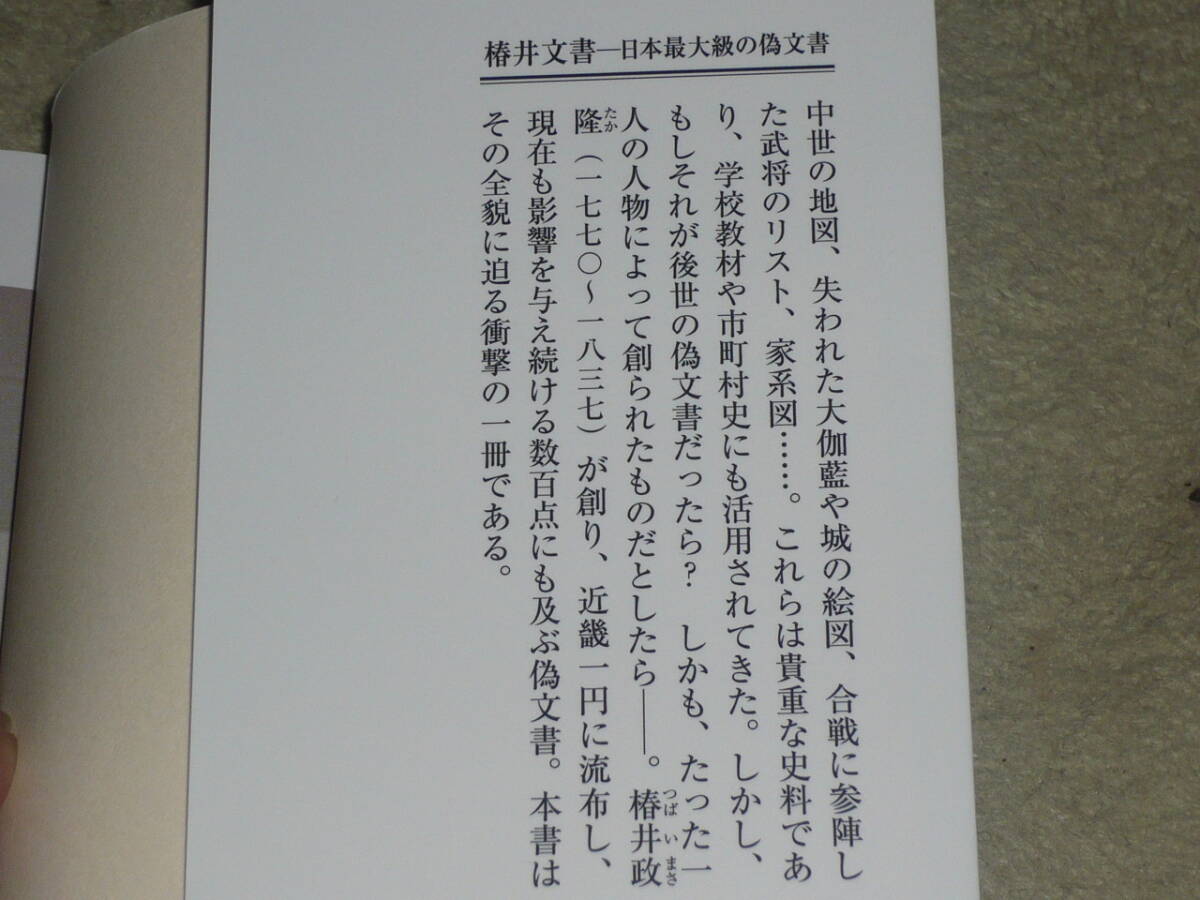 椿井文書―日本最大級の偽文書
中世の地図、失われた大伽藍や城の絵図、合戦に参陣し
た武将のリスト、家系図……。これらは貴重な史料であ
り、学校教材や市町村史にも活用されてきた。しかし、
もしそれが後世の偽文書だったら？　しかも、たった一
人の人物によって創られたものだとしたら――。椿井政
つばいまさ
隆（一七七〇～一八三七）が創り、近畿一円に流布し、
たか
現在も影響を与え続ける数百点にも及ぶ偽文書。本書は
その全貌に迫る衝撃の一冊である。